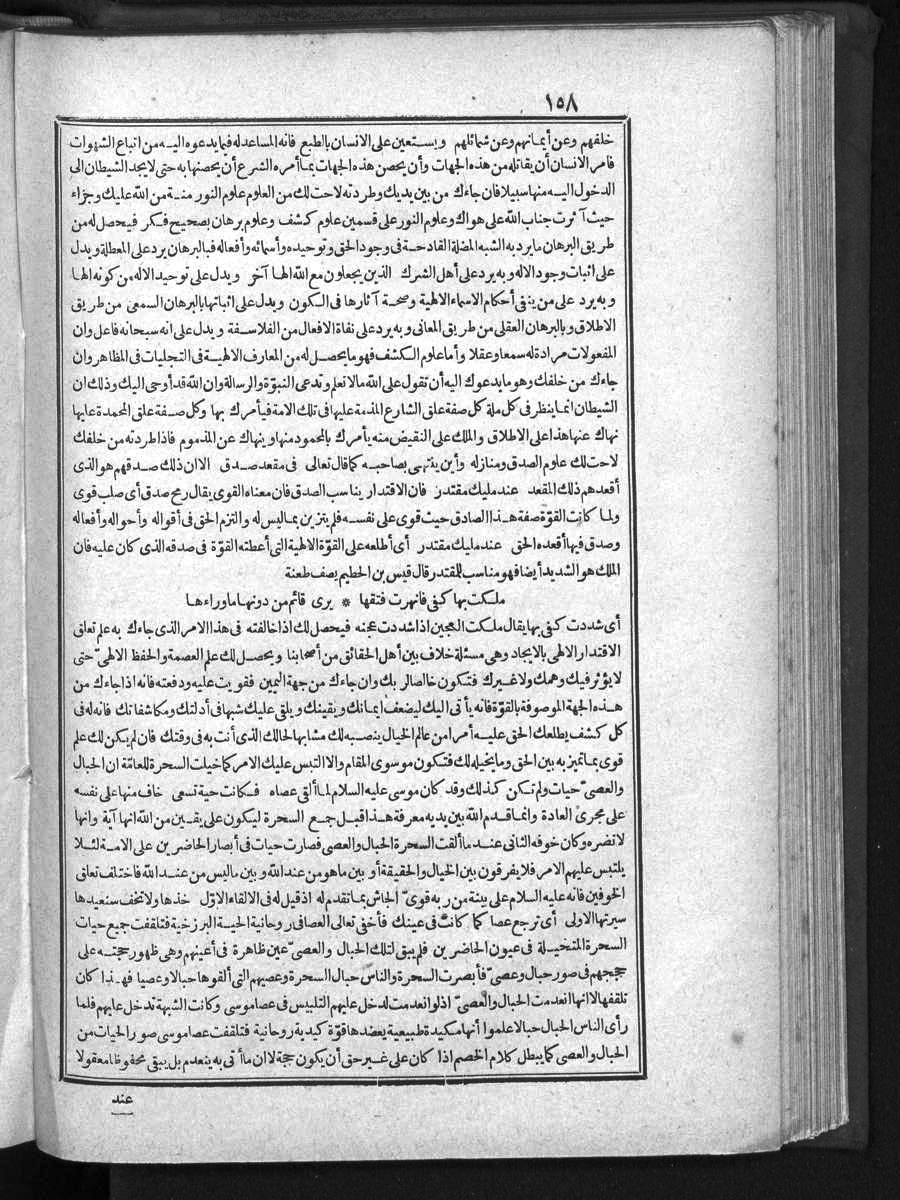 ١٥٨
خلفهم وعن أيمانهم وعن شمائلهم ويستعين على الانسان بالطبع فانه المساعد له فيما يدعوه اليه من اتباع الشهوات
فامر الانسان أن يقاتله من هذه الجهات وأن يحصن هذه الجهات بما أمره الشرع أن يحصنها به حتى لا يجد الشيطان الى
الدخول اليه منها سبيلا فان جاءك من بين يديك وطردته لاحت لك من العلوم علوم النور منة من الله عليك وجزاء
حيث آثرت جناب الله على هواك وعلوم النور على قسمين علوم كشف وعلوم برهان بصحيح فكر فيحصل له من
طريق البرهان ما يرد به الشبه المضلة القادحة فى وجود الحق وتوحيده وأسمائه وأفعاله فبالبرهان يرد على المعطلة ويدل
على اثبات وجود الاله وبه يرد على أهل الشرك الذين يجعلون مع الله الها آخر ويدل على توحيد الاله من كونه الها
وبه يرد على من ينفى أحكام الاسماء الالهية وصحة آثارها فى الكون ويدل على اثباتها بالبرهان السمعى من طريق
الاطلاق وبالبرهان العقلى من طريق المعانى وبه يرد على نفاة الافعال من الفلاسفة ويدل على انه سبحانه فاعل وان
المفعولات مرادة له سمعا وعقلا وأما علوم الكشف فهو ما يحصل له من المعارف الالهية فى التجليات فى المظاهر وان
جاءك من خلفك وهو ما يدعوك اليه أن تقول على الله ما لا تعلم وتدعى النبوّة والرسالة وان الله قد أوحى اليك وذلك ان
الشيطان انما ينظر فى كل ملة كل صفة علق الشارع المذمة عليها فى تلك الامة فيأمرك بها وكل صفة علق المحمدة عليها
نهاك عنها هذا على الاطلاق والملك على النقيض منه يأمرك بالمحمود منها وينهاك عن المذموم فاذا طردته من خلفك
لاحت لك علوم الصدق ومنازله وأين ينتهى بصاحبه كما قال تعالى فى مقعد صدق الا ان ذلك صدقهم هو الذى
أقعدهم ذلك المقعد عند مليك مقتدر فان الاقتدار يناسب الصدق فان معناه القوى يقال رمح صدق أى صلب قوى
ولما كانت القوّة صفة هذا الصادق حيث قوى على نفسه فلم يتزين بما ليس له والتزم الحق فى أقواله وأحواله وأفعاله
وصدق فيها أقعده الحق عند مليك مقتدر أى أطلعه على القوّة الالهية التى أعطته القوّة فى صدقه الذى كان عليه فان
الملك هو الشديد أيضا فهو مناسب للمقتدر قال قيس بن الخطيم يصف طعنة
ملكت بها كفى فانهرت فتقها * يرى قائم من دونها ما وراءها
أى شددت كفى بها يقال ملكت العجين اذا شددت عجنه فيحصل لك اذا خالفته فى هذا الامر الذى جاءك به علم تعلق
الاقتدار الالهى بالايجاد وهى مسئلة خلاف بين أهل الحقائق من أصحابنا ويحصل لك علم العصمة والحفظ الالهىّ حتى
لا يؤثر فيك وهمك ولا غيرك فتكون خالصا لربك وان جاءك من جهة اليمين فقويت عليه ودفعته فانه اذا جاءك من
هذه الجهة الموصوفة بالقوّة فانه يأتى اليك ليضعف ايمانك ويقينك ويلقى عليك شبها فى أدلتك ومكاشفاتك فانه له فى
كل كشف يطلعك الحق عليه أمرا من عالم الخيال ينصبه لك مشابها لحالك الذى أنت به فى وقتك فان لم يكن لك علم
قوى بما تميز به بين الحق وما يخيله لك فتكون موسوى المقام والا التبس عليك الامر كما خيلت السحرة للعامّة ان الحبال
والعصىّ حيات ولم تكن كذلك وقد كان موسى عليه السلام لما ألقى عصاه فكانت حية تسعى خاف منها على نفسه
على مجرى العادة وانما قدم الله بين يديه معرفة هذا قبل جمع السحرة ليكون على يقين من الله انها آية وانها
لا تضره وكان خوفه الثانى عند ما ألقت السحرة الحبال والعصى فصارت حيات فى أبصار الحاضرين على الامة لئلا
يلتبس عليهم الامر فلا يفرقون بين الخيال والحقيقة أو بين ما هو من عند الله وبين ما ليس من عند الله فاختلف تعلق
الخوفين فانه عليه السلام على بينة من ربه قوىّ الجاش بما تقدم له اذ قيل له فى الالقاء الاوّل خذها ولا تخف سنعيدها
سيرتها الاولى أى ترجع عصا كما كانت فى عينك فأخفى تعالى العصا فى روحانية الحية البرزخية فتلقفت جميع حيات
السحرة المتخيلة فى عيون الحاضرين فلم يبق لتلك الحبال والعصىّ عين ظاهرة فى أعينهم وهى ظهور حجته على
حججهم فى صور حبال وعصىّ فأبصرت السحرة والناس حبال السحرة وعصيهم التى ألقوها حبالا وعصيا فهذا كان
تلقفها لا انها انعدمت الحبال والعصىّ اذ لو انعدمت لدخل عليهم التلبيس فى عصا موسى وكانت الشبهة تدخل عليهم فلما
رأى الناس الحبال حبالا علموا أنها مكيدة طبيعية يعضدها قوّة كيدية روحانية فتلقفت عصا موسى صور الحيات من
الحبال والعصى كما يبطل كلام الخصم اذا كان على غير حق أن يكون حجة لا ان ما أتى به ينعدم بل يبقى محفوظا معقولا
عند